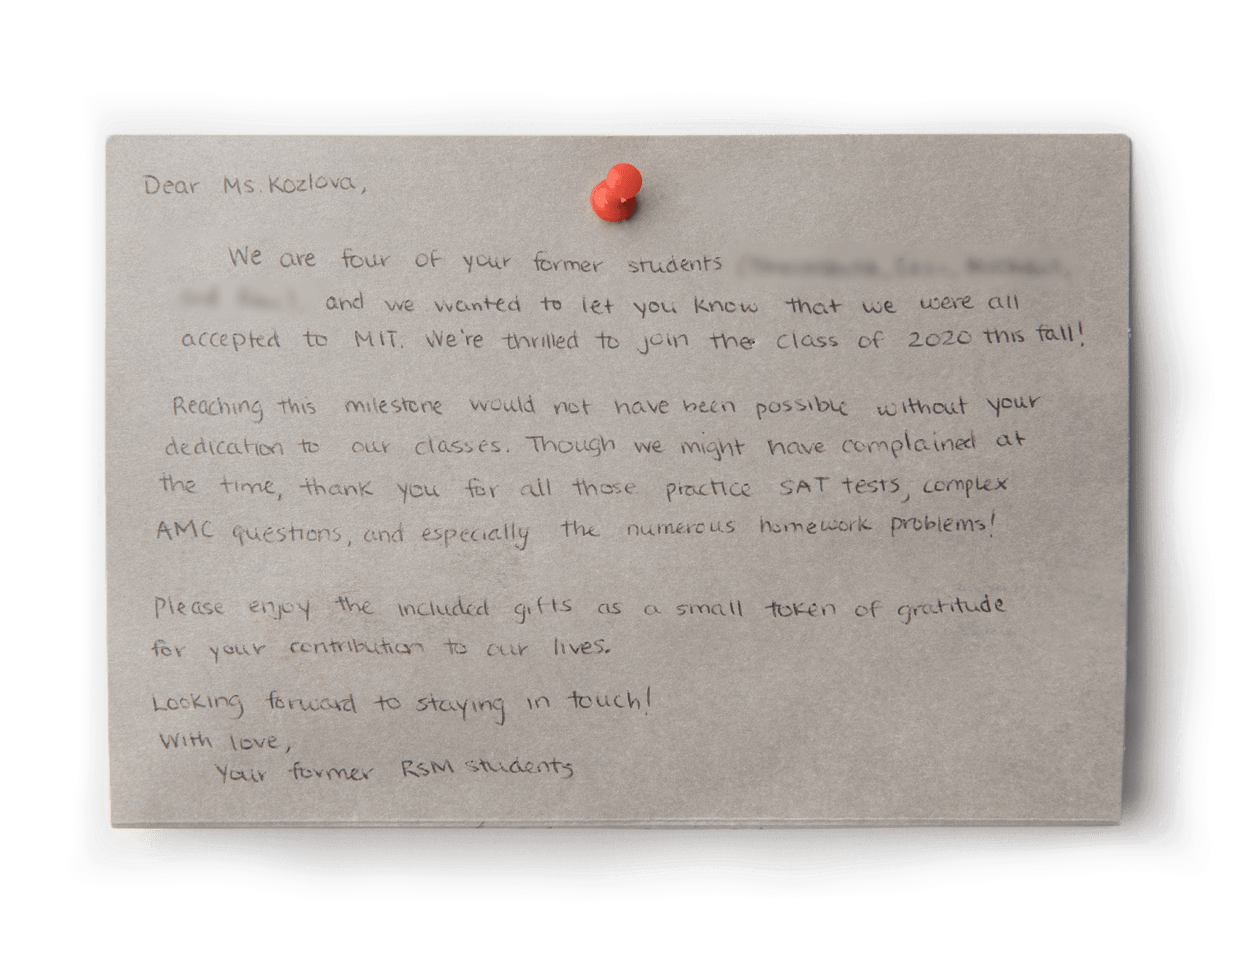 Dear Ms. Kozlova,
We are four of your former students
and we wanted to let you know that we were all
accepted to MIT. We're thrilled to join the class of 2020 this fall!
Reaching this milestone would not have been possible without your
dedication to our classes. Though we might have complained at
the time, thank you for all those practice SAT tests, complex
AMC questions, and especially the numerous homework problems!
Please enjoy the included gifts as a small token of gratitude
for your contribution to our lives.
Looking forward to staying in touch!
With love,
Your former RSM students